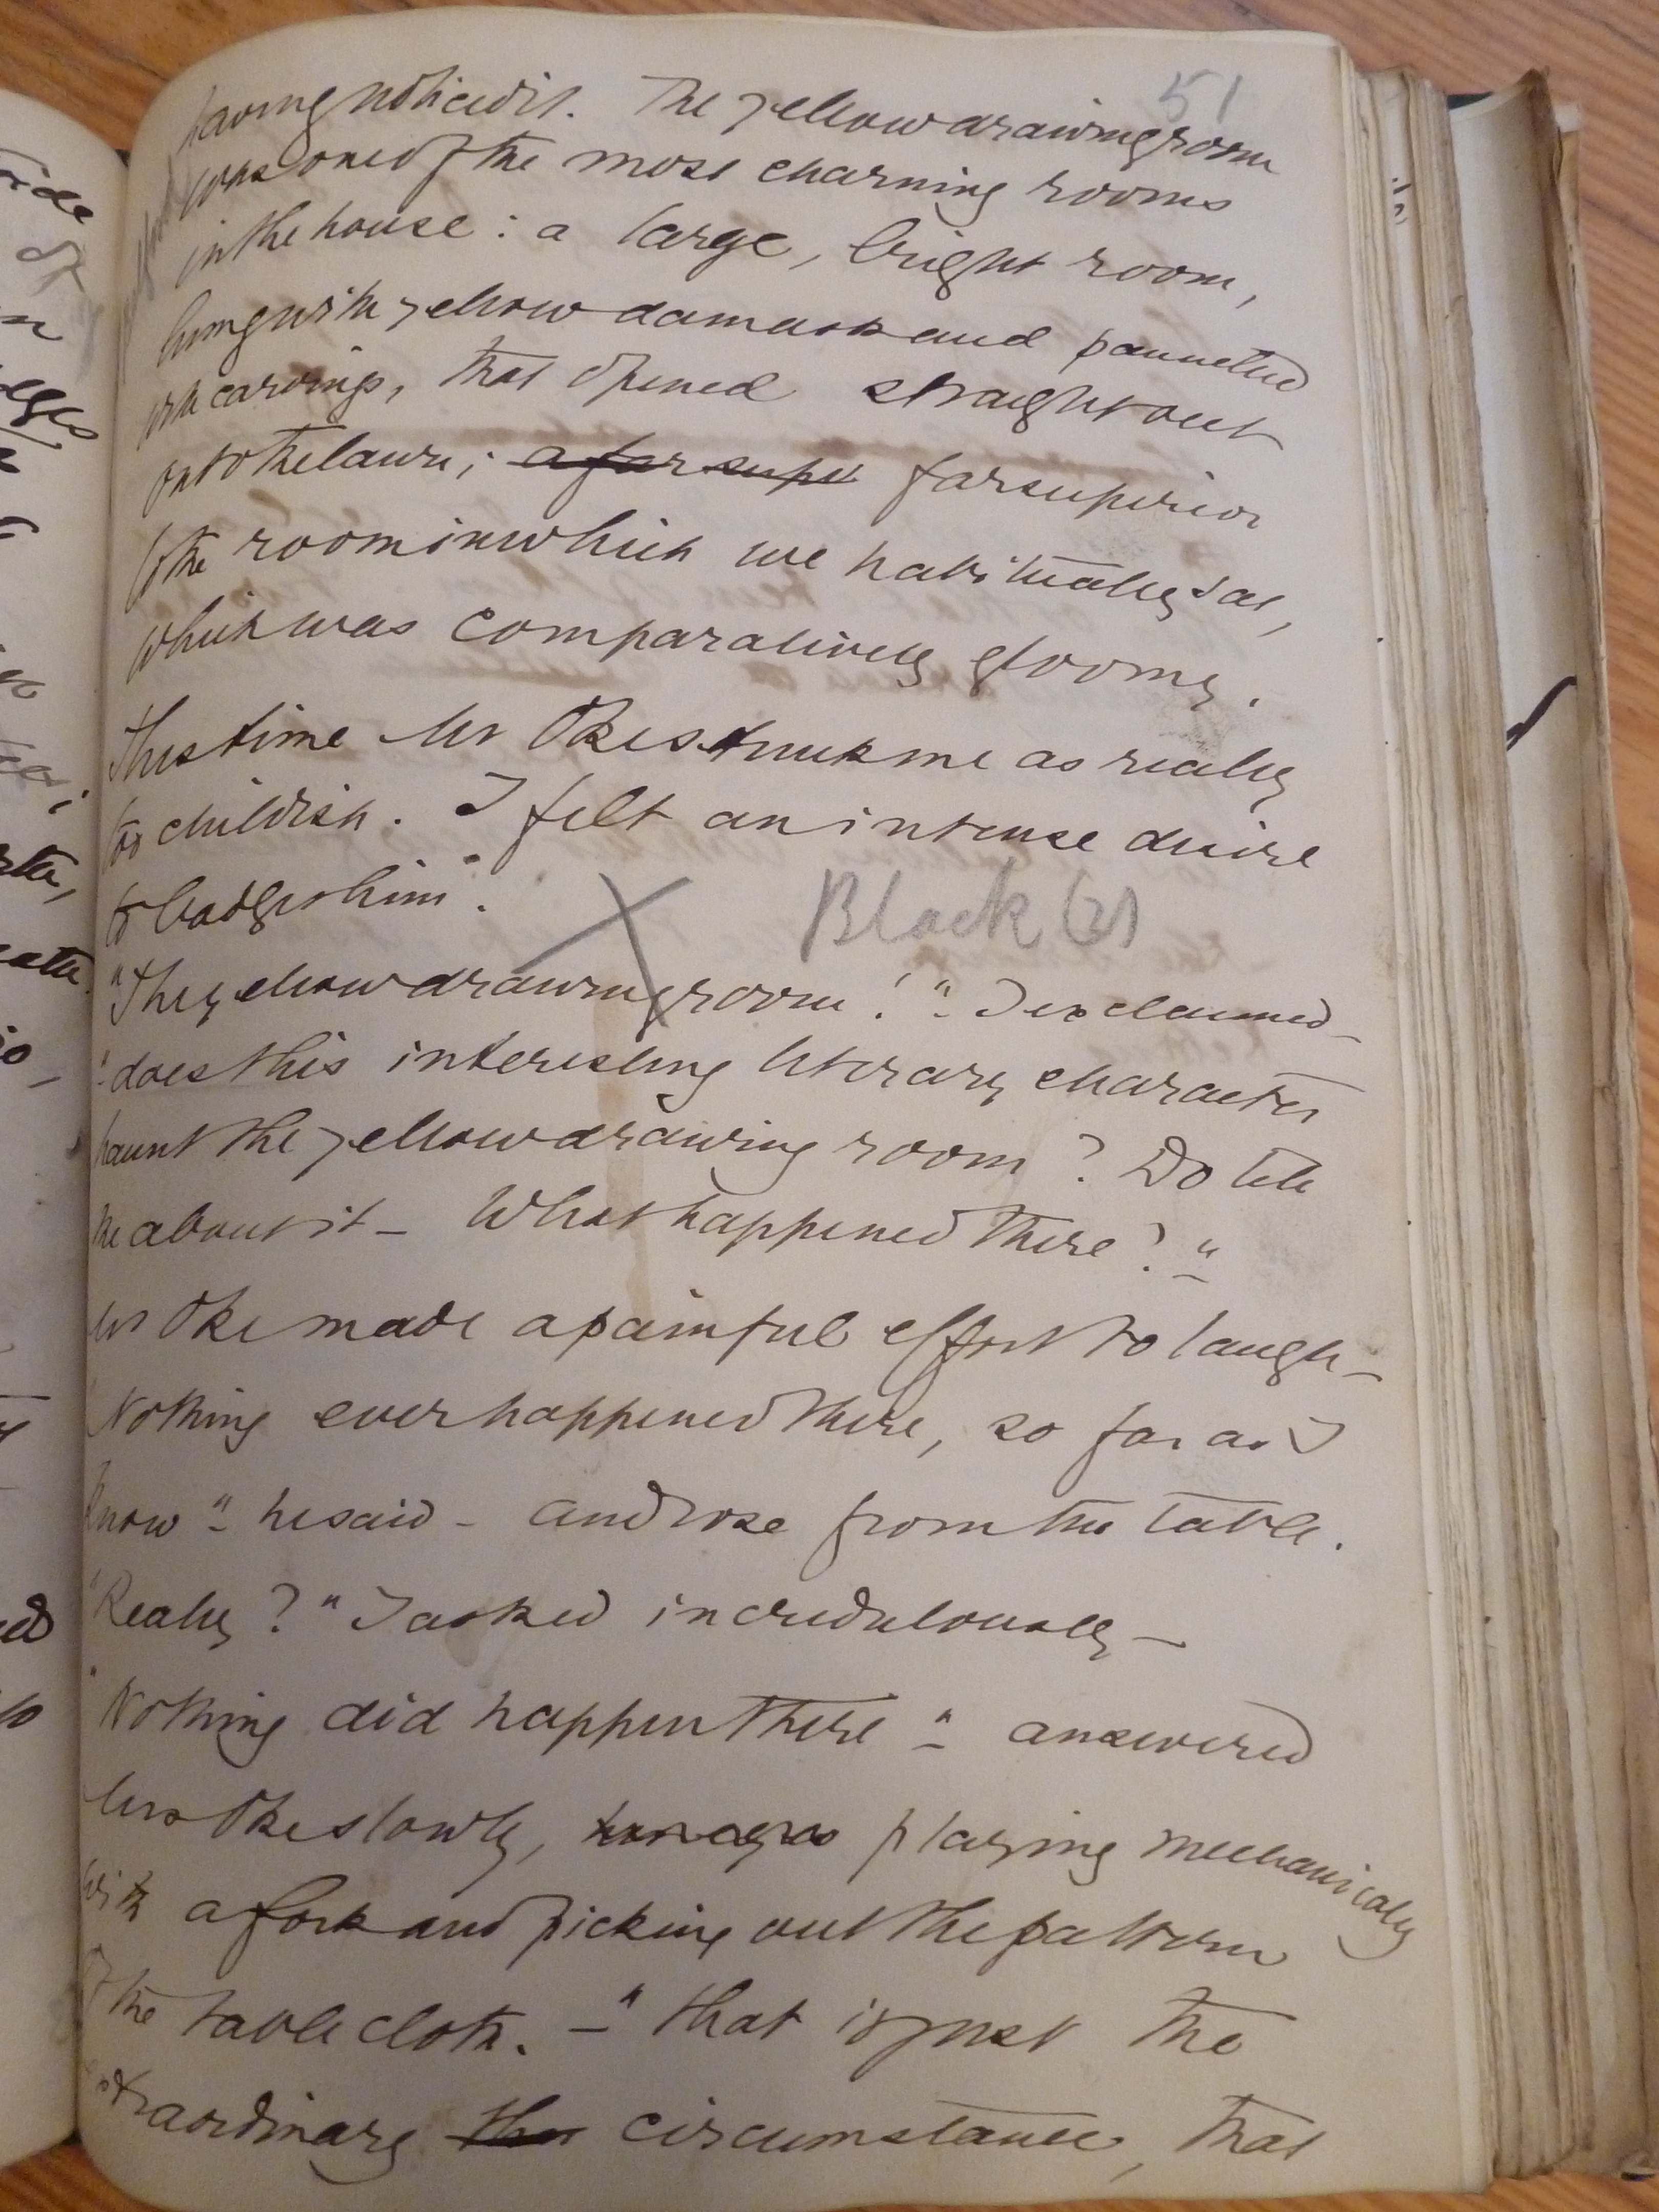 51
having noticed it. The yellow drawing room
was one of the most charming rooms
in the house : a large, bright room,
hung with yellow damask and pannelled
with carvings, that opened straight out
on to the lawn ; a far supe far superior
to the room in which we habitually sat,
which was comparatively gloomy.
This time Mr Oke struck me as really
too childish. I felt an intense desire
to badger him.
X Black (2)
"The yellow drawing room!" - I exclaimed -
"does this interesting literary character
haunt the yellow drawing room? Do tell
me about it - What happened there?" -
Mr Oke made a painful effort to laugh -
Nothing ever happened there, so far as I
know" - he said - and rose from the table.
"Really?" I asked incredulously -
"Nothing did happen there" - answered
Mrs Oke slowly, playing mechanically
with a fork and picking out the pattern
of the table cloth. - "that is just the
extraordinary the circumstance, that